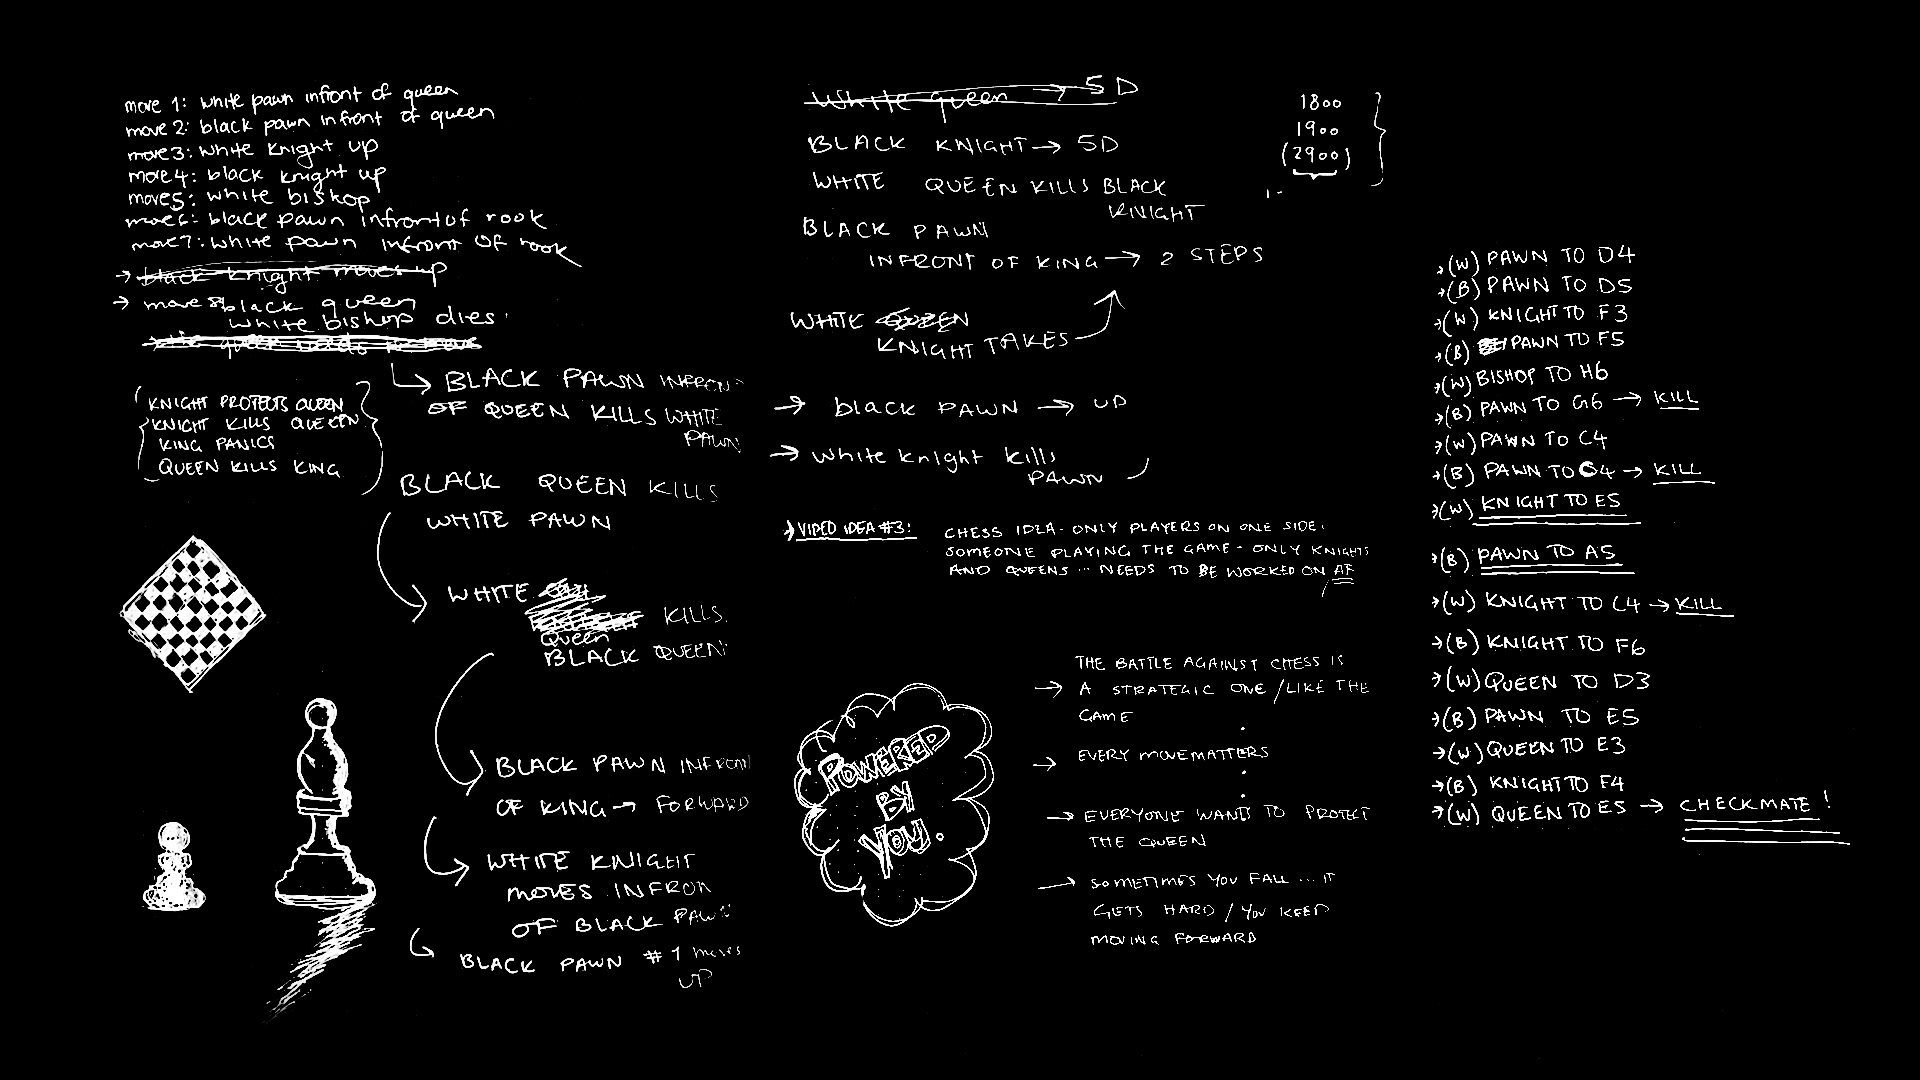 move 1: white pawn infront of queen
move 2: black pawn infront of queen
move 3: white knight up
move 4: black knight up
move 5: white bishop
move 6: black pawn infront of rook
move 7: white pawn infront of rook
→ black knight moves up
→ move 8: black queen
white bishop dies
KNIGHT PROTECTS QUEEN
KNIGHT KILLS QUEEN
KING PANICS
QUEEN KILLS KING
BLACK PAWN INFRONT
OF QUEEN KILLS WHITE
PAWN
BLACK QUEEN KILLS
WHITE PAWN
WHITE
KILLS
Queen
BLACK QUEEN
BLACK PAWN INFRONT
OF KING → FORWARD
WHITE KNIGHT
MOVES INFRON
OF BLACK PAWN
BLACK PAWN #1 moves
UP
White queen → 5D
BLACK KNIGHT → 5D
WHITE QUEEN KILLS BLACK
KNIGHT
BLACK PAWN
INFRONT OF KING → 2 STEPS
WHITE QUEEN
KNIGHT TAKES
→ black PAWN → UP
→ white knight kills
PAWN
→ VIDEO IDEA #3: CHESS IDEA - ONLY PLAYERS ON ONE SIDE.
SOMEONE PLAYING THE GAME - ONLY KNIGHTS
AND QUEENS ... NEEDS TO BE WORKED ON AF
POWERED
BY
YOU.
THE BATTLE AGAINST CHESS IS
→ A STRATEGIC ONE / LIKE THE
GAME
→ EVERY MOVE MATTERS
→ EVERYONE WANTS TO PROTECT
THE QUEEN
→ SOMETIMES YOU FALL ... IT
GETS HARD / YOU KEEP
MOVING FORWARD
1800
1900
(2900)
→ (W) PAWN TO D4
→ (B) PAWN TO D5
→ (W) KNIGHT TO F3
→ (B) PAWN TO F5
→ (W) BISHOP TO H6
→ (B) PAWN TO G6 → KILL
→ (W) PAWN TO C4
→ (B) PAWN TO C4 → KILL
→ (W) KNIGHT TO E5
→ (B) PAWN TO A5
→ (W) KNIGHT TO C4 → KILL
→ (B) KNIGHT TO F6
→ (W) QUEEN TO D3
→ (B) PAWN TO E5
→ (W) QUEEN TO E3
→ (B) KNIGHT TO F4
→ (W) QUEEN TO E5 → CHECKMATE!